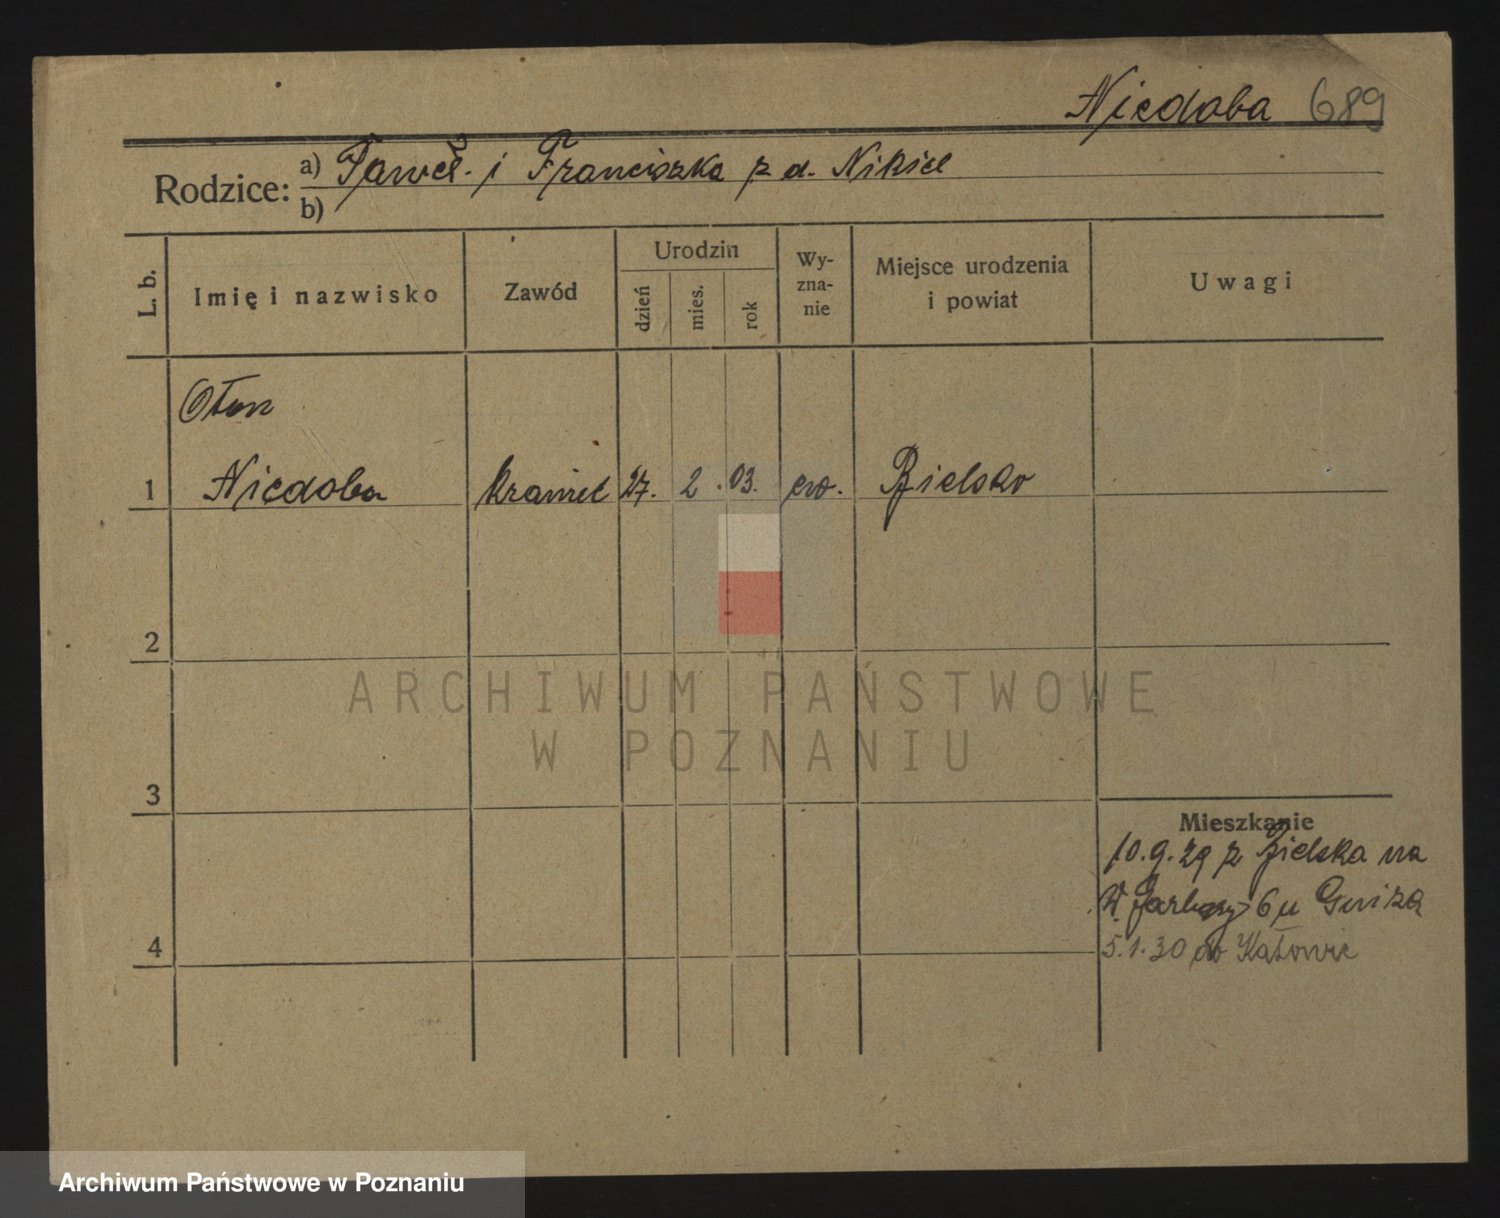 Niedoba 689
Rodzice: a) Paweł i Franciszka z d. Nikiel
b)
L. b.
Imię i nazwisko
Zawód
Urodzin
dzień
mies.
rok
Wy-
zna-
nie
Miejsce urodzenia
i powiat
Uwagi
Oton
1 Niedoba krawiec 27. 2. 03. ew. Bielsko
2
3
4
Mieszkanie
10.9.29 z Bielska na
W. Garbary 6 u
5.1.30 do Katowic
ARCHIWUM PAŃSTWOWE
W POZNANIU
Archiwum Państwowe w Poznaniu